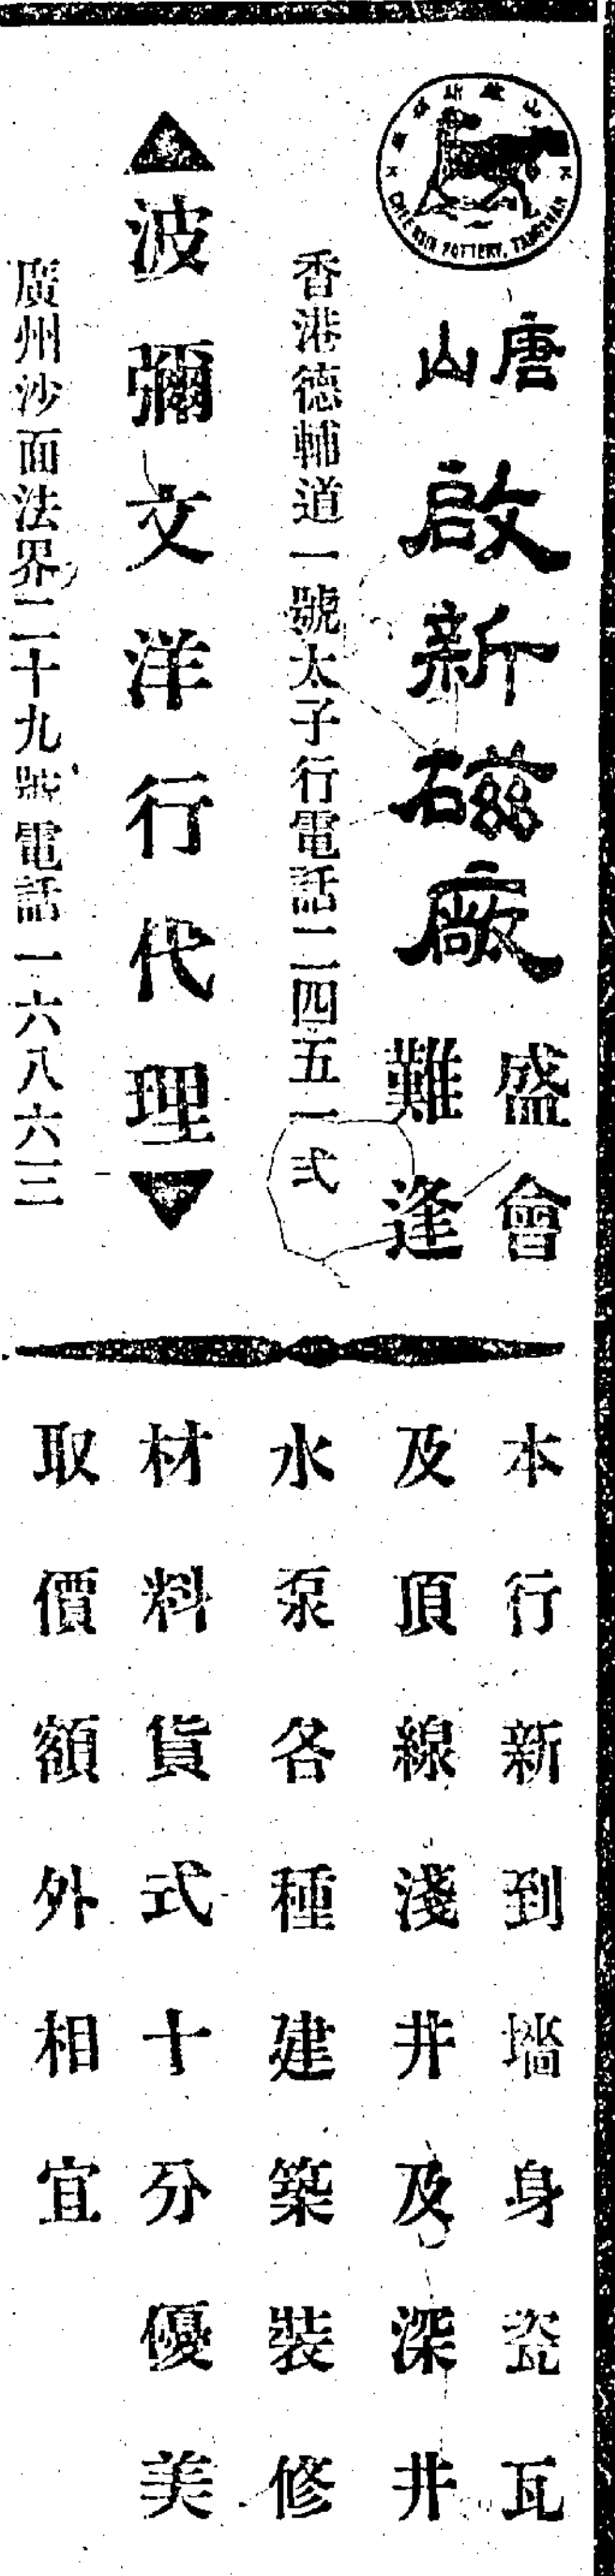 CHEE HSIN POTTERY, TANGSHAN
唐山
啟新磁廠
盛會
難逢
香港德輔道一號太子行電話二四五一式
波彌文洋行代理
廣州沙面法界二十九號電話一六八六三
本行新到墻身瓷瓦
及頂線淺井及深井
水泵各種建築裝修
材料貨式十分優美
取價額外相宜